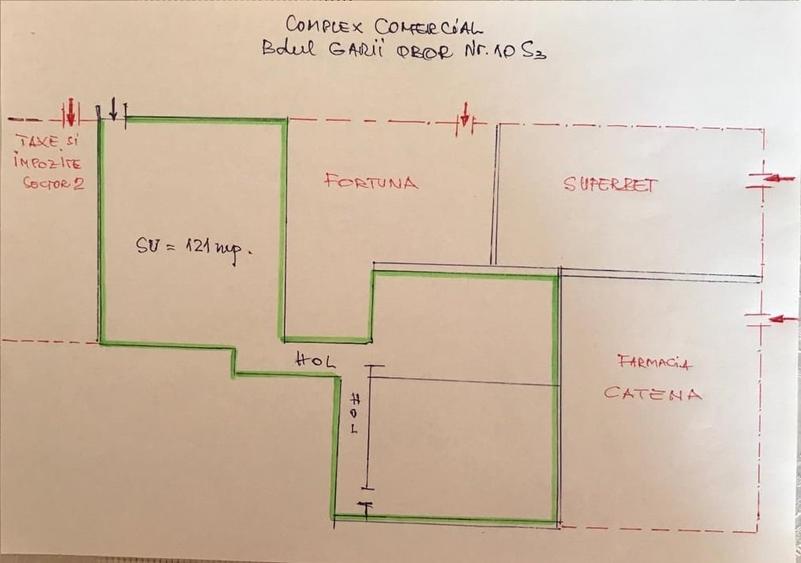 COMPLEX COMERCIAL
Bdul GARII OBOR Nr. 10 S3
TAXE SI
IMPOZITE
SECTOR 2
FORTUNA
SUPERBET
SU = 121 mp.
HOL
HOL
FARMACIA
CATENA